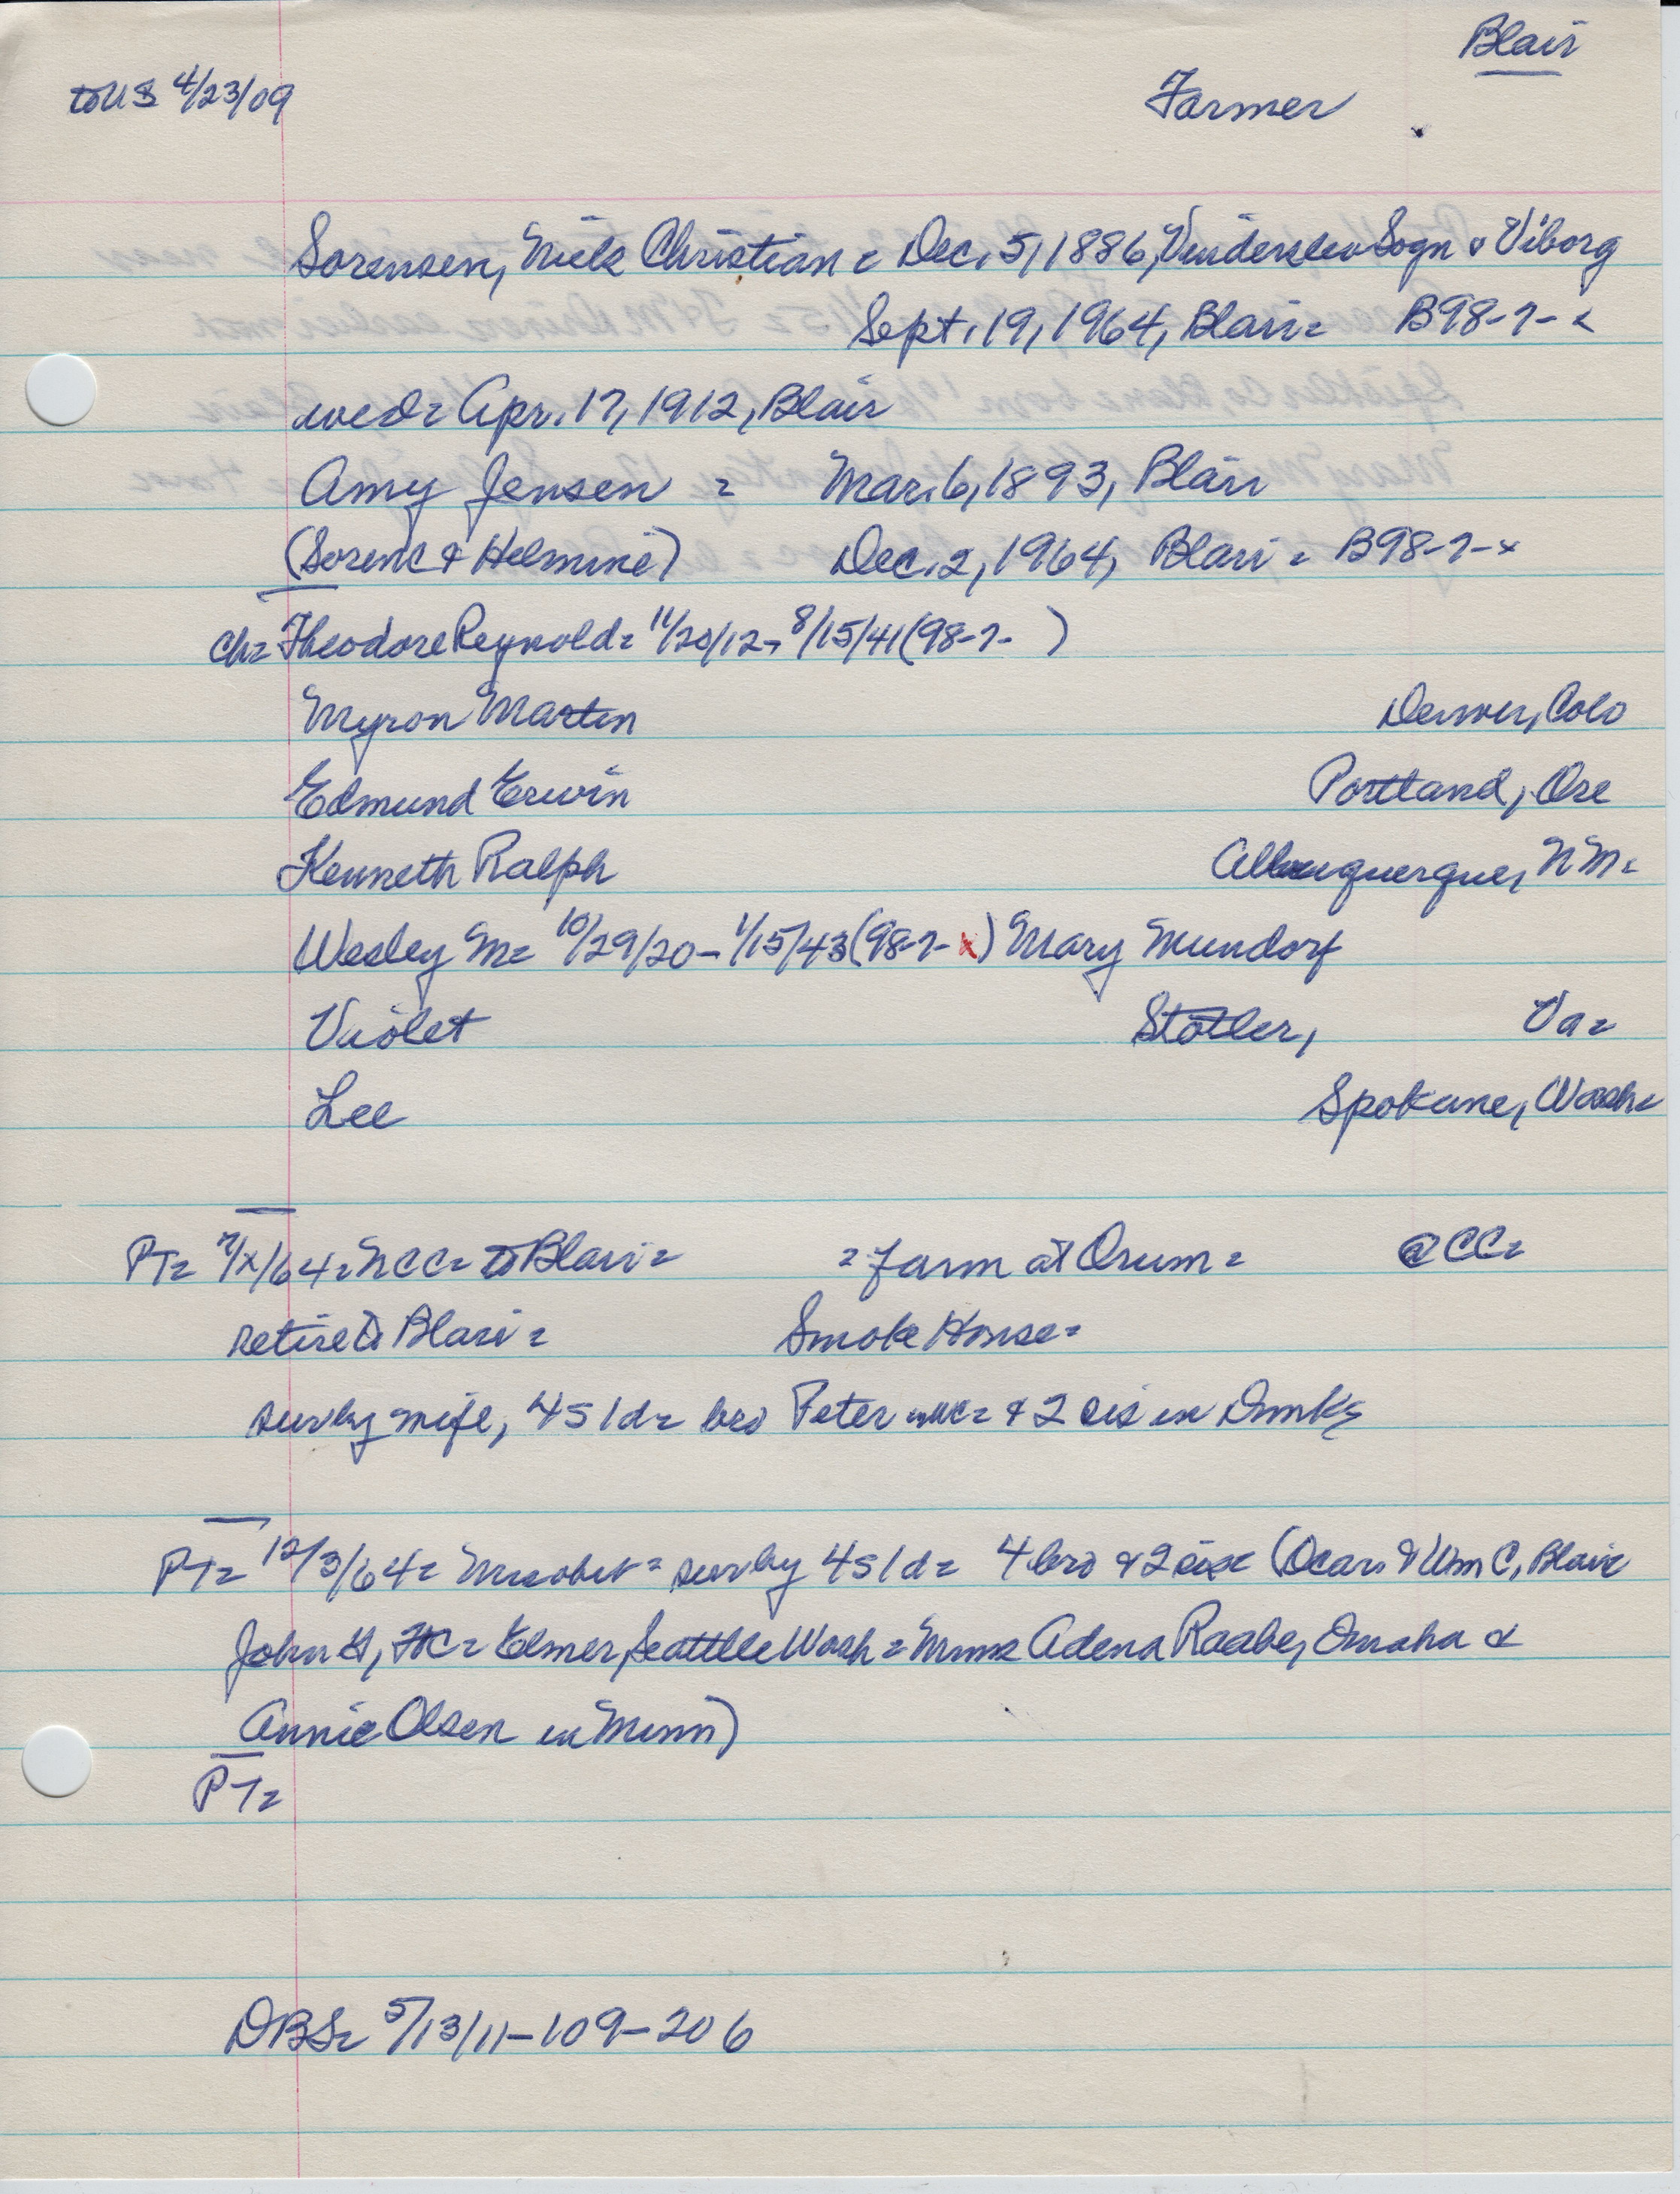 Blair
to US 4/23/09
Farmer
Sorensen, Niels Christian = Dec. 5, 1886, Vinderslev Sogn & Viborg
Sept. 19, 1964, Blair = B98-7-x
wed = Apr. 17, 1912, Blair
Amy Jensen = Mar. 6, 1893, Blair
(Soren C & Helmine) Dec. 2, 1964, Blair = B98-7-x
ch = Theodore Reynold = 11/20/12 - 8/15/41 (98-7- )
Myron Martin Denver, Colo
Edmund Erwin Portland, Ore
Kenneth Ralph Albuquerque, N M =
Wesley M = 10/29/20 - 1/15/43 (98-7-x) Mary Mundorf
Violet Stotler, Va =
Lee Spokane, Wash =
PT = 9/x/64 = NCC = to Blair = = farm at Orum = @ CC =
retire to Blair = Smoke House =
surv by wife, 4s 1d = bro Peter & 2 sis in Dnmk
PT = 12/3/64 = Mrs obit = surv by 4s 1d = 4 bro & 2 sis (Oscar & Wm C, Blair
John H, FtC = Elmer, Seattle Wash = Mmes Adena Raabe, Omaha &
Annie Olsen in Minn)
PT =
DBS = 5/13/11-109-206